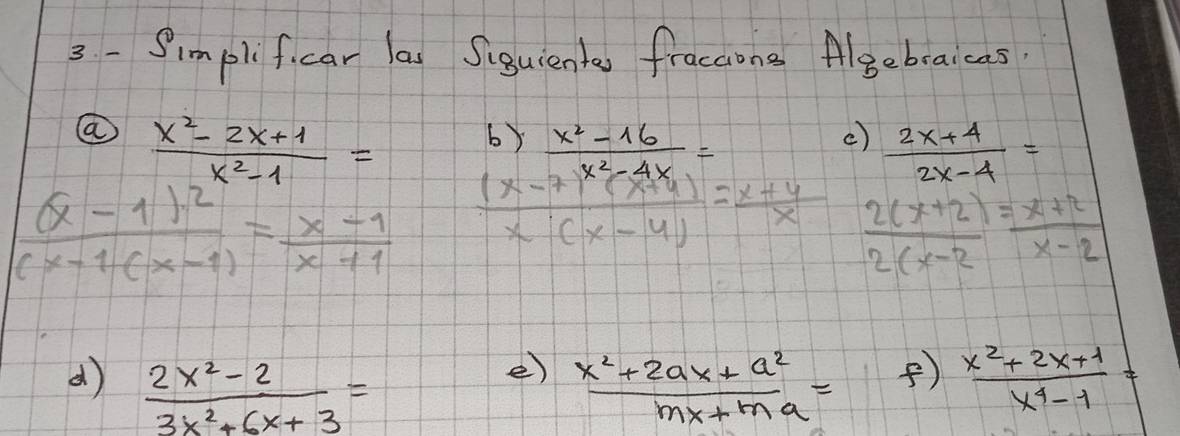 3.- Simplificar las Siguientes fraccions Algebraicas.
a) x² - 2x + 1 / x² - 1 =
b) x² - 16 / x² - 4x =
c) 2x + 4 / 2x - 4 =
(x - 1)² / (x + 1(x - 1) = x - 1 / x + 1
(x - 7) (x + 4) / x (x - 4) = x + 4 / x
2(x + 2) / 2(x - 2 = x + 2 / x - 2
d) 2x² - 2 / 3x² + 6x + 3 =
e) x² + 2ax + a² / mx + ma =
f) x² + 2x + 1 / x⁴ - 1 =